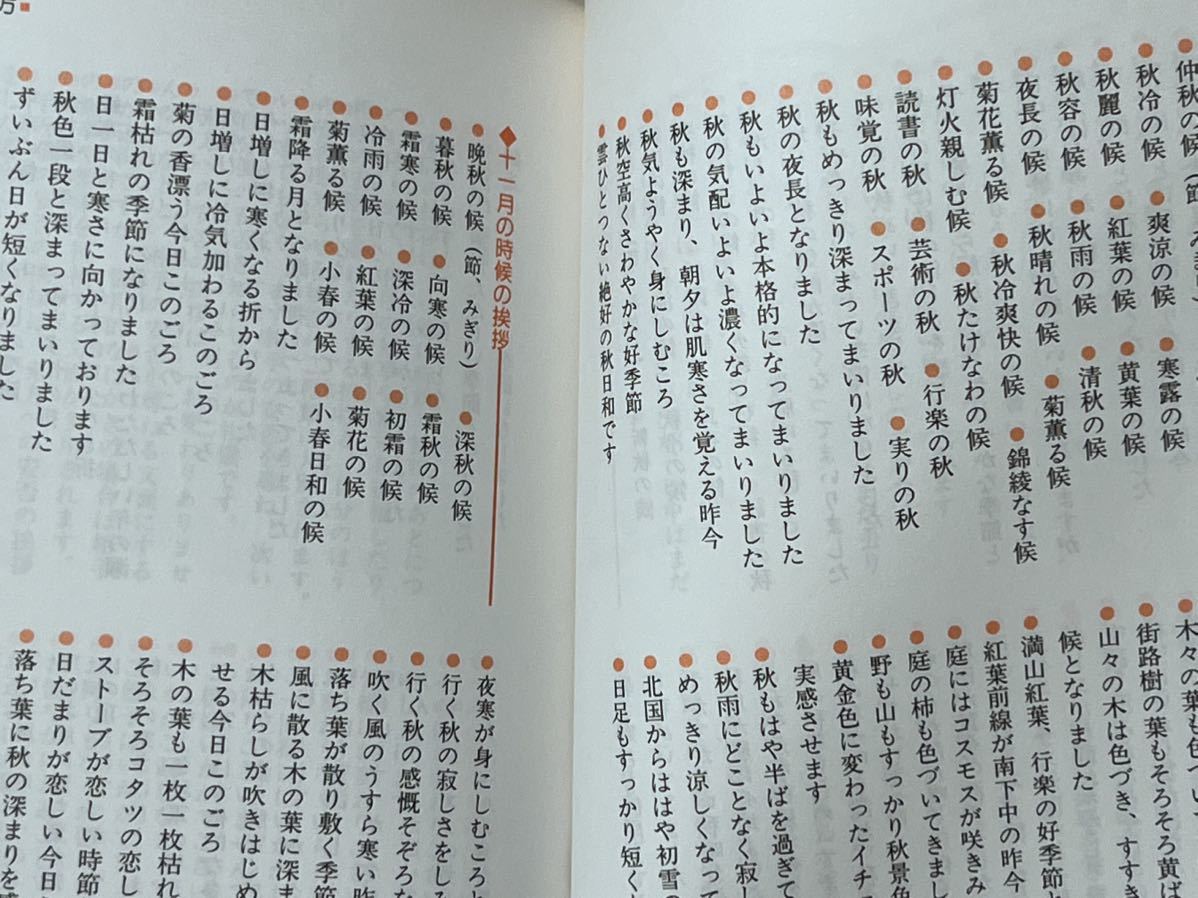 仲秋の候（節、み
秋冷の候 ●爽涼の候 ●寒露の候
●秋麗の候 ●紅葉の候 ●黄葉の候
●秋容の候 ●秋雨の候 ●清秋の候
●夜長の候 ●秋晴れの候 ●菊薫る候
●菊花薫る候 ●秋冷爽快の候 ●錦綾なす候
●灯火親しむ候 ●秋たけなわの候
●読書の秋 ●芸術の秋 ●行楽の秋
●味覚の秋 ●スポーツの秋 ●実りの秋
●秋もめっきり深まってまいりました
●秋の夜長となりました
●秋もいよいよ本格的になってまいりました
●秋の気配いよいよ濃くなってまいりました
●秋も深まり、朝夕は肌寒さを覚える昨今
●秋気ようやく身にしむころ
●秋空高くさわやかな好季節
●雲ひとつない絶好の秋日和です
●木々の葉も色づい
●街路樹の葉もそろそろ黄ば
●山々の木は色づき、すすき
候となりました
●満山紅葉、行楽の好季節と
●紅葉前線が南下中の昨今
●庭にはコスモスが咲きみ
●庭の柿も色づいてきまし
●野も山もすっかり秋景色
●黄金色に変わったイチ
実感させます
●秋もはや半ばを過ぎて
●秋雨にどことなく寂し
●めっきり涼しくなって
●北国からはや初雪の
●日足もすっかり短く
方■
◆十一月の時候の挨拶
●晩秋の候（節、みぎり） ●深秋の候
●暮秋の候 ●向寒の候 ●霜秋の候
●霜寒の候 ●深冷の候 ●初霜の候
●冷雨の候 ●紅葉の候 ●菊花の候
●菊薫る候 ●小春の候 ●小春日和の候
●霜降る月となりました
●日増しに寒くなる折から
●日増しに冷気加わるこのごろ
●菊の香漂う今日このごろ
●霜枯れの季節になりました
●日一日と寒さに向かっております
●秋色一段と深まってまいりました
●ずいぶん日が短くなりました
●夜寒が身にしむころと
●行く秋の寂しさをしみ
●行く秋の感慨そぞろな
●吹く風のうすら寒い昨
●落ち葉が散り敷く季節
●風に散る木の葉に深ま
●木枯らしが吹きはじめ
せる今日このごろ
●木の葉も一枚一枚枯れ
●そろそろコタツの恋し
●ストーブが恋しい時節
●日だまりが恋しい今日
●落ち葉に秋の深まりを感